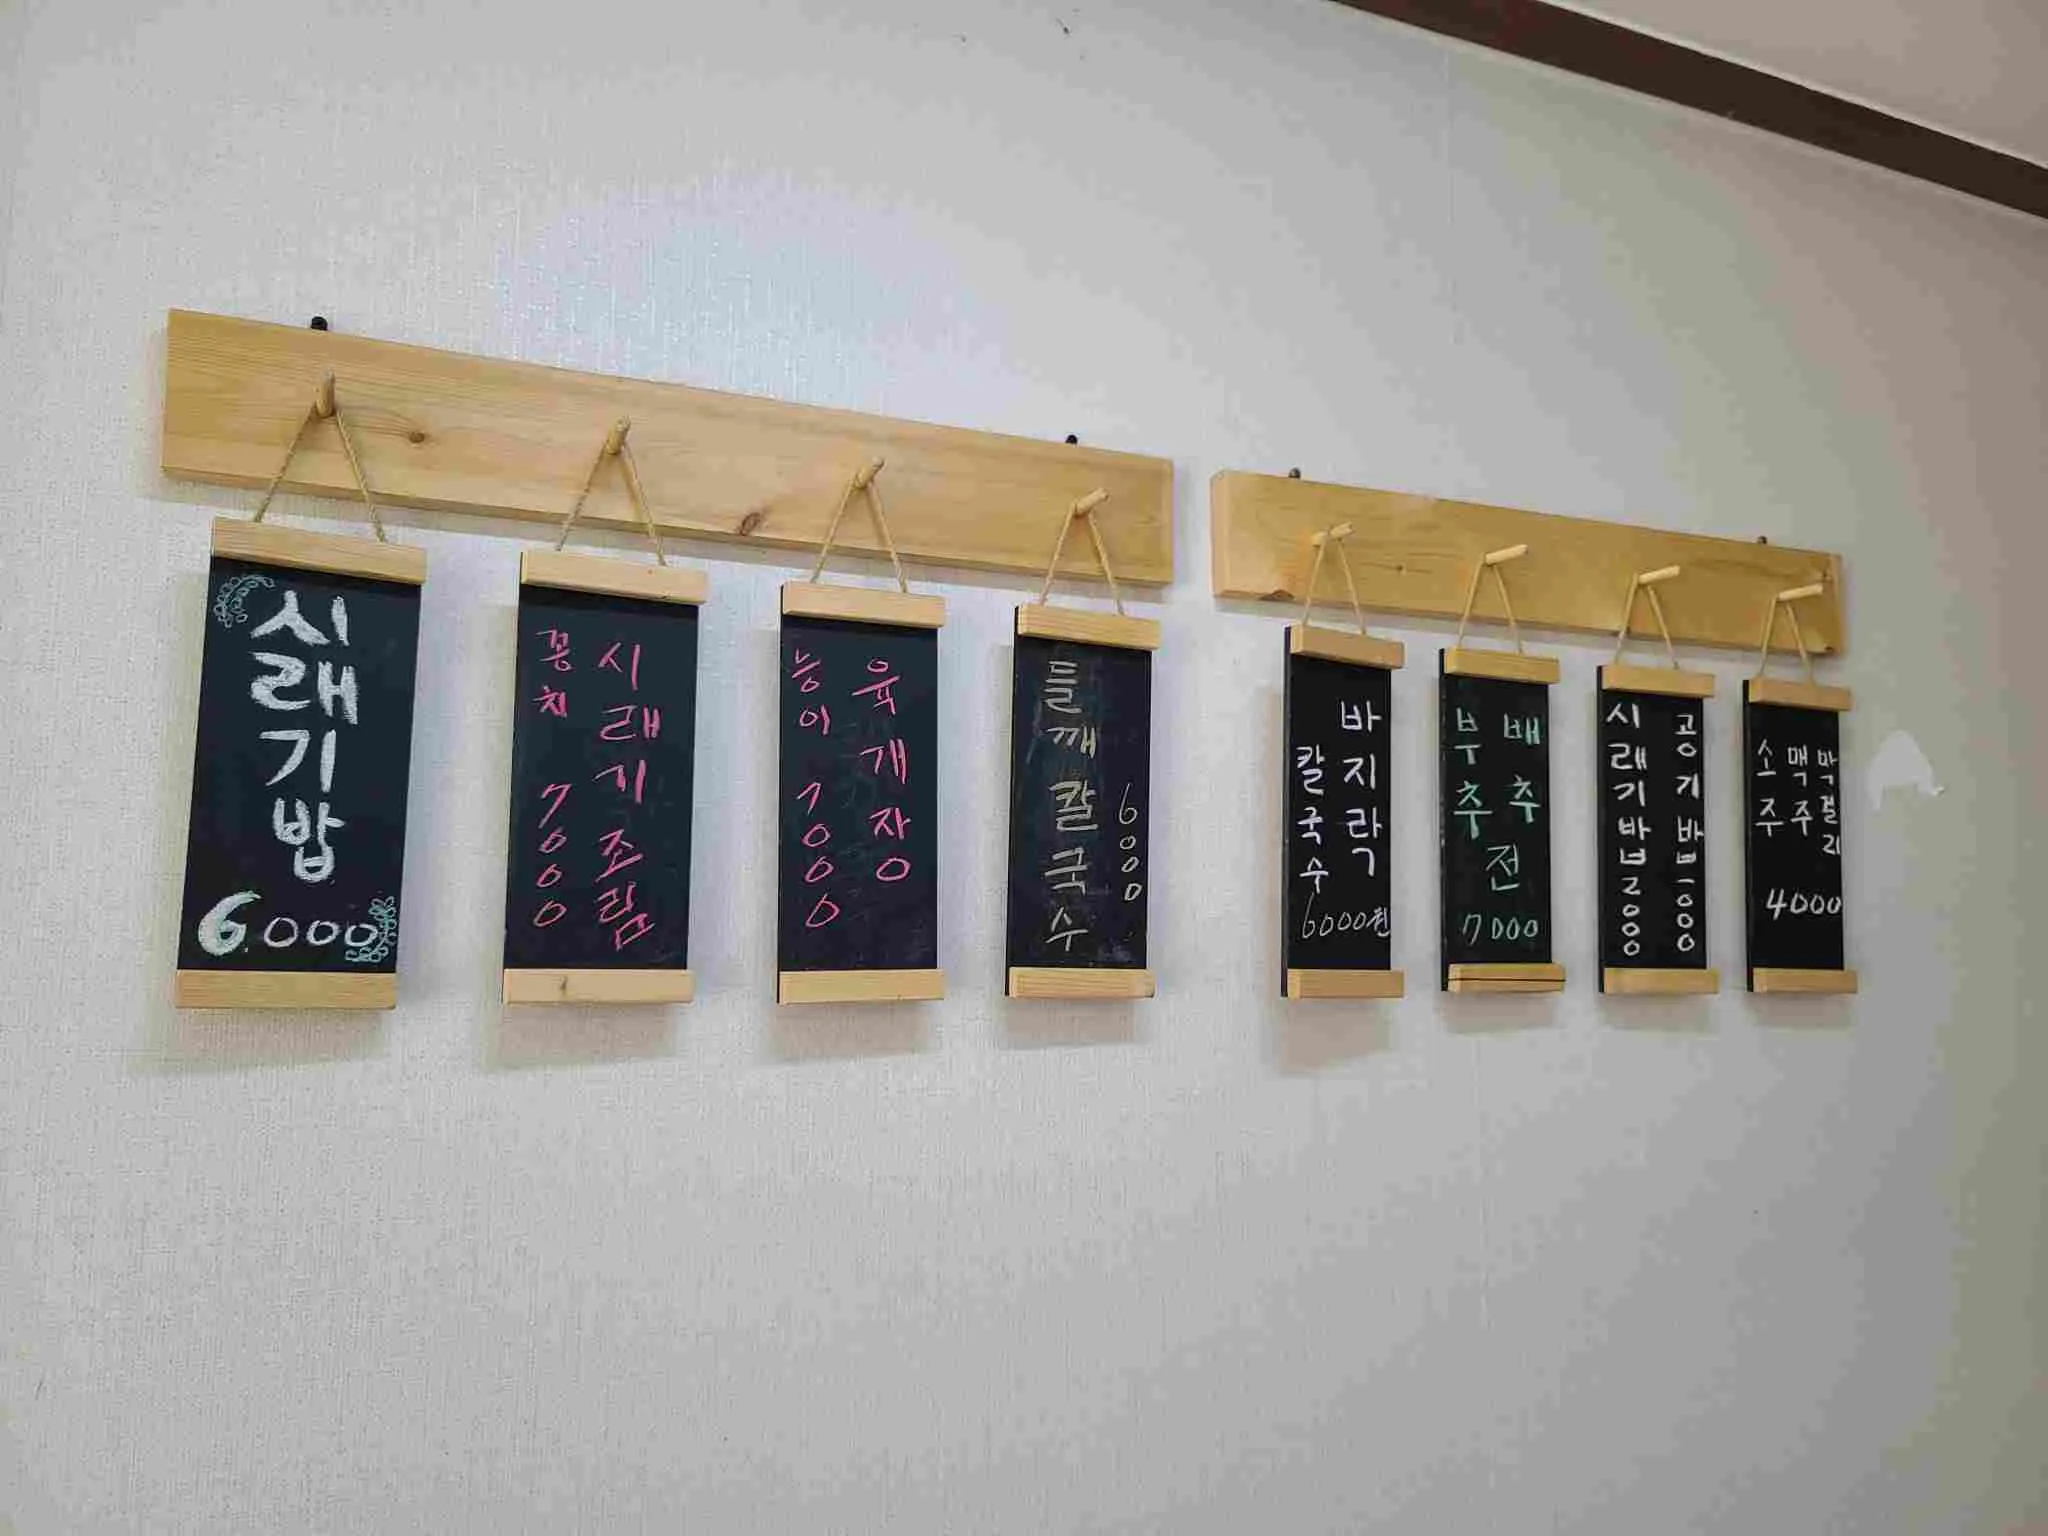 시래기밥
6.000
꽁치
시래기조림
7000
능이
육개장
7000
들깨칼국수
6000
바지락
칼국수
6000원
부추
배추
전
7000
시래기밥2000
공기밥1000
소주
맥주
막걸리
4000